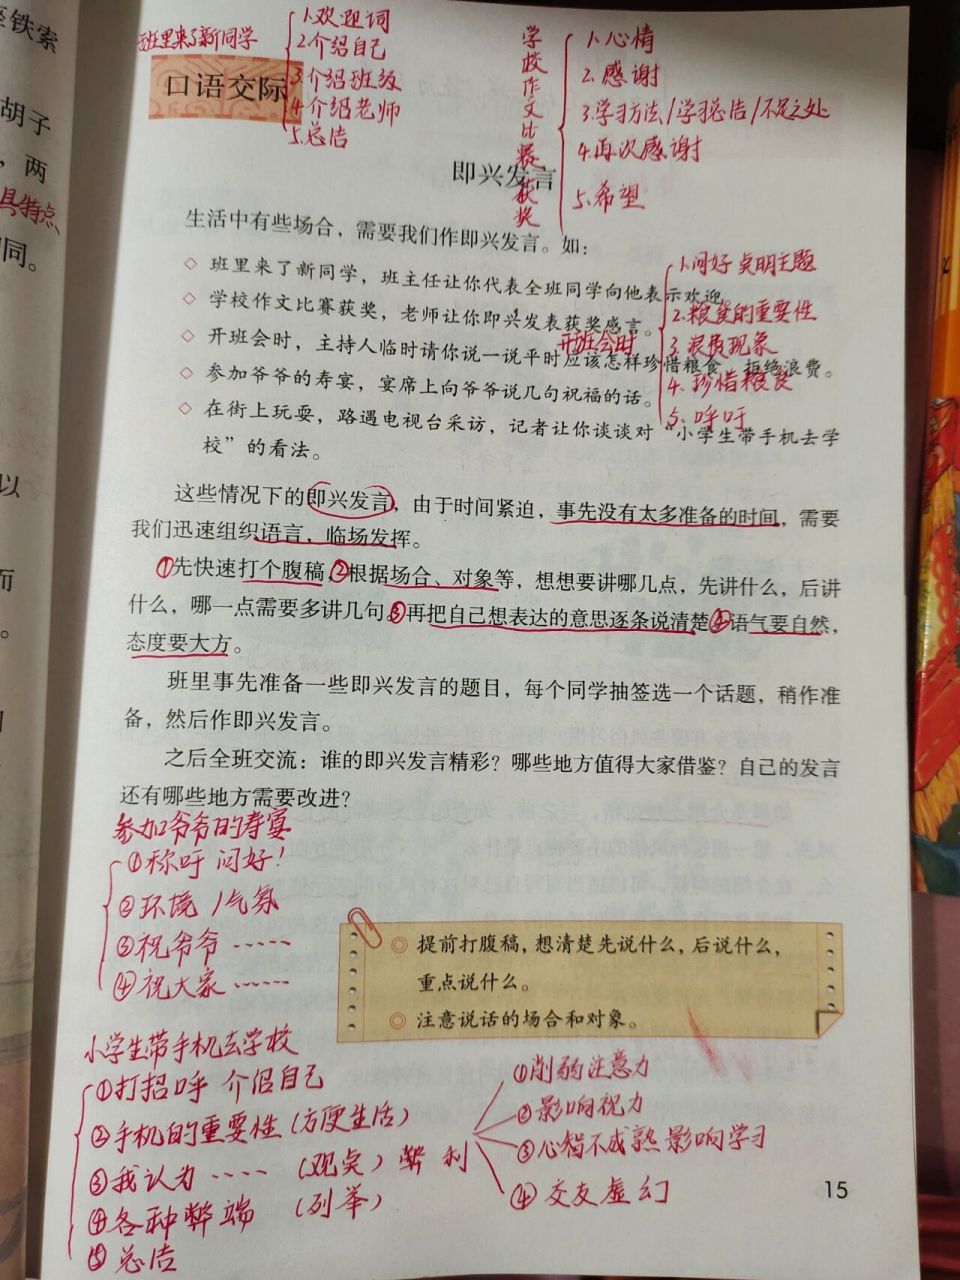 班里来了新同学
1.欢迎词
2.介绍自己
3.介绍班级
4.介绍老师
5.总结
口语交际
学校作文比赛获奖
1.心情
2.感谢
3.学习方法/学习总结/不足之处
4.再次感谢
5.希望
即兴发言
生活中有些场合，需要我们作即兴发言。如：
◇ 班里来了新同学，班主任让你代表全班同学向他表示欢迎。
◇ 学校作文比赛获奖，老师让你即兴发表获奖感言。
◇ 开班会时，主持人临时请你说一说平时应该怎样珍惜粮食、拒绝浪费。
◇ 参加爷爷的寿宴，宴席上向爷爷说几句祝福的话。
◇ 在街上玩耍，路遇电视台采访，记者让你谈谈对“小学生带手机去学
校”的看法。
开班会时
1.问好 点明主题
2.粮食的重要性
3.浪费现象
4.珍惜粮食
5.呼吁
这些情况下的即兴发言，由于时间紧迫，事先没有太多准备的时间，需要
我们迅速组织语言，临场发挥。
①先快速打个腹稿，②根据场合、对象等，想想要讲哪几点，先讲什么，后讲
什么，哪一点需要多讲几句。③再把自己想表达的意思逐条说清楚④语气要自然，
态度要大方。
班里事先准备一些即兴发言的题目，每个同学抽签选一个话题，稍作准
备，然后作即兴发言。
之后全班交流：谁的即兴发言精彩？哪些地方值得大家借鉴？自己的发言
还有哪些地方需要改进？
参加爷爷的寿宴
①称呼 问好！
②环境/气氛
③祝爷爷……
④祝大家……
◎ 提前打腹稿，想清楚先说什么，后说什么，
重点说什么。
◎ 注意说话的场合和对象。
小学生带手机去学校
①打招呼 介绍自己
②手机的重要性（方便生活）
③我认为……（观点）弊 利
④各种弊端（列举）
⑤总结
①削弱注意力
②影响视力
③心智不成熟 影响学习
④交友虚幻
15
胡子
，两
具特点
同。
以
而
。